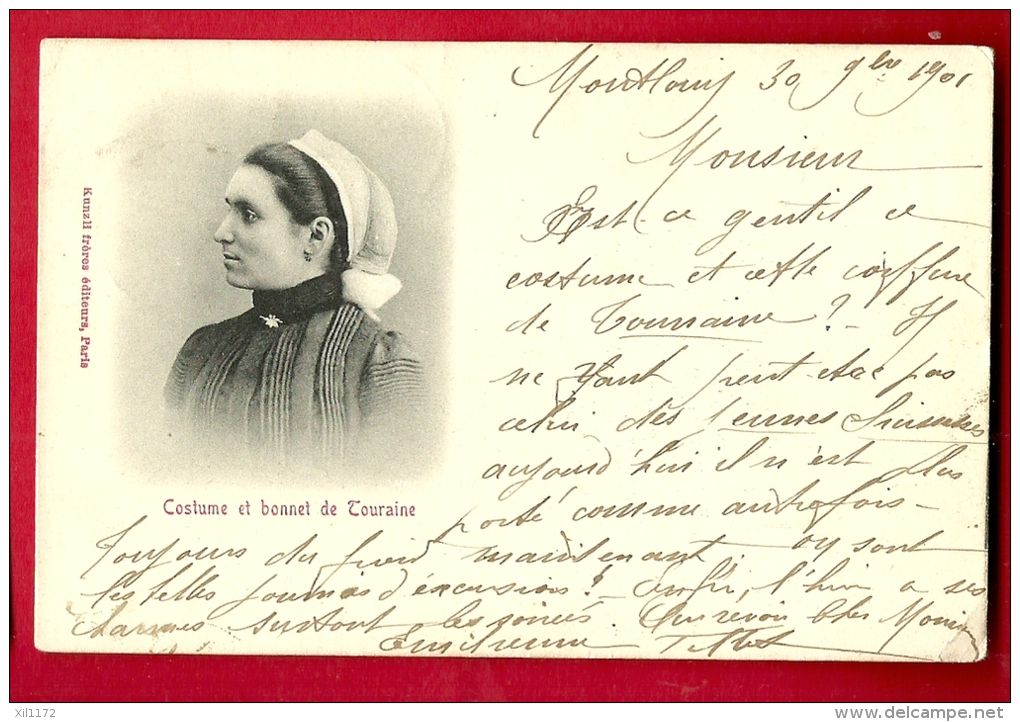 Montlouis 30 9bre 1901
Monsieur
Est-ce gentil ce
costume et cette coiffure
de Touraine ? - Il
ne vaut peut-etre pas
celui des jeunes Suissesses
aujourd'hui il n'est plus
porté comme autrefois -
Kunzli frères éditeurs, Paris
Costume et bonnet de Touraine
Toujours du froid maintenant, où sont
les belles journées d'excursions ? - enfin, l'hiver a ses
charmes surtout les soirées. Au revoir Cher Monsieur
Emilienne
xil1172
delcampe.net